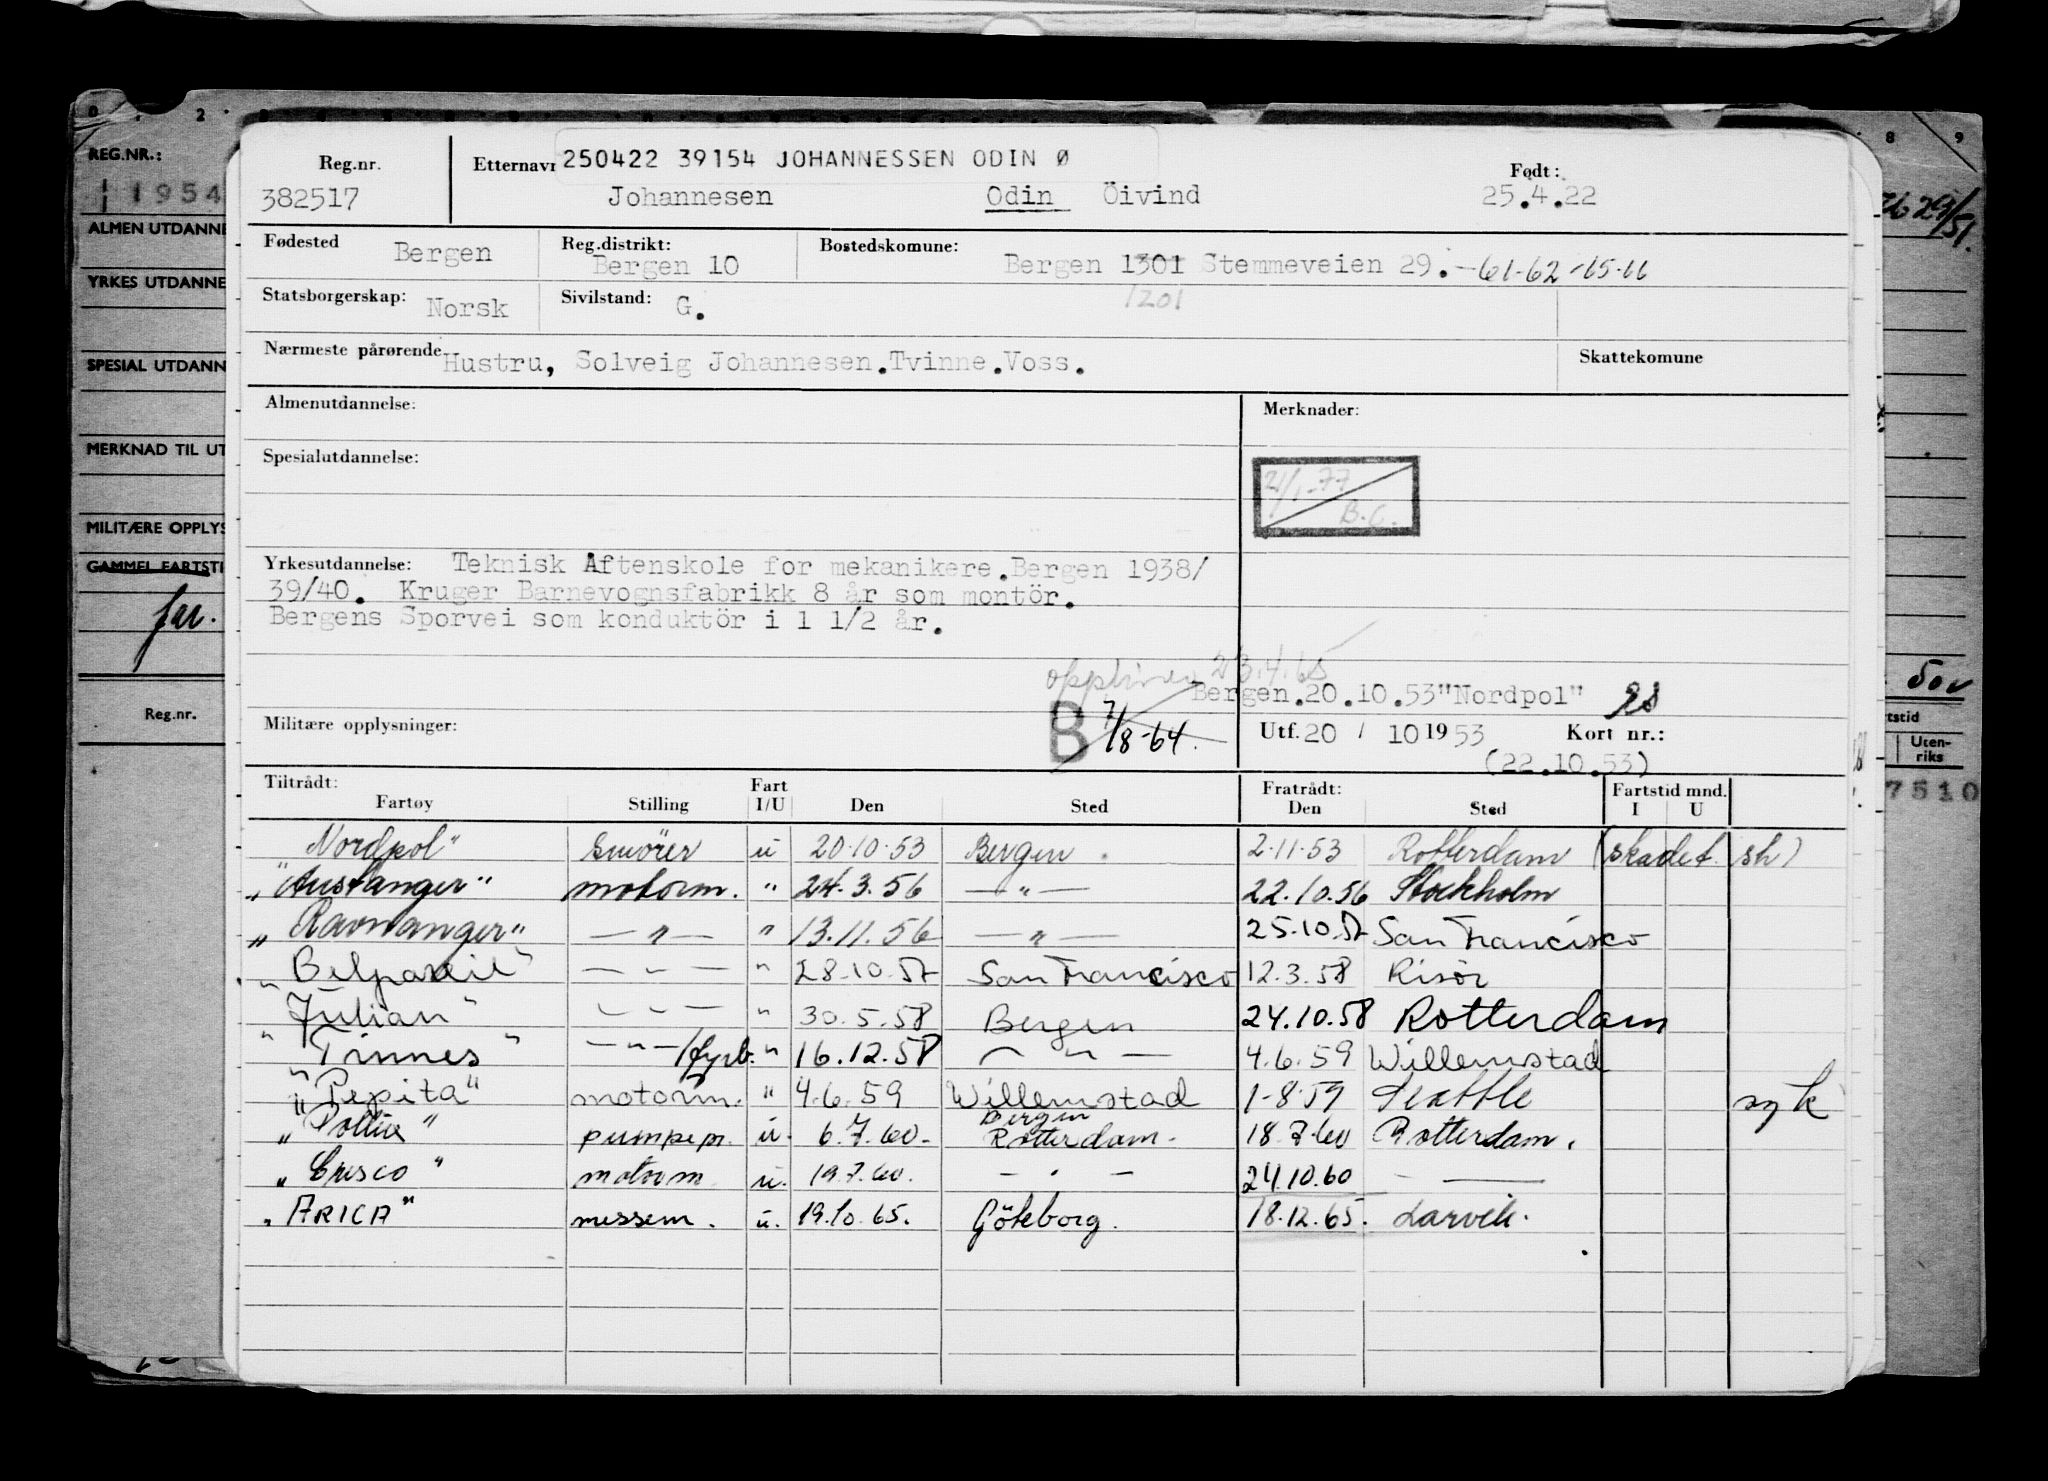 REG.NR.:
1954
ALMEN UTDANNE
YRKES UTDANNE
SPESIAL UTDANN
MERKNAD TIL UT
MILITÆRE OPPLYS
GAMMEL FARTSTI
Reg.nr.
Reg.nr. Etternavn 250422 39154 JOHANNESSEN ODIN Ø Født:
382517 Johannesen Odin Öivind 25.4.22
Fødested Bergen Reg.distrikt: Bergen 10 Bostedskomune: Bergen 1301 Stemmeveien 29. -61-62-65-66
1201
Statsborgerskap: Norsk Sivilstand: G.
Nærmeste pårørende Hustru, Solveig Johannesen.Tvinne.Voss. Skattekomune
Almenutdannelse: Merknader:
Spesialutdannelse:
21/1-77
B.C.
Yrkesutdannelse: Teknisk Aftenskole for mekanikere.Bergen 1938/
39/40. Kruger Barnevognsfabrikk 8 år som montör.
Bergens Sporvei som konduktör i 1 1/2 år.
23.4.65
Bergen.20.10.53"Nordpol"
Militære opplysninger: B 7/8-64. Utf.20 / 10 1953 Kort nr.:
(22.10.53)
Tiltrådt: Fratrådt:
Fartøy Stilling Fart I/U Den Sted Den Sted Fartstid mnd. I U
"Nordpol" Smörer u 20.10.53 Bergen. 2.11.53 Rotterdam (skadet sh)
"Austanger" motorm. " 24.3.56 — " — 22.10.56 Stockholm
"Ravnanger" — " — " 13.11.56 — " — 25.10.57 San Francisco
"Belpareil" — " — " 28.10.57 San Francisco 12.3.58 Risör
"Julian" — " — " 30.5.58 Bergen 24.10.58 Rotterdam
"Tinnes" — " — /fyrb. " 16.12.58 — " — 4.6.59 Willemstad
"Pepita" motorm. " 4.6.59 Willemstad 1-8.59 Seattle syk
"Pollux" pumpem. u. 6.7.60. Bergen Rotterdam. 18.7.60 Rotterdam.
"Crisco" motorm u. 19.7.60. — " — 24.10.60 — " —
"ARICA" messem. u. 19.10.65. Göteborg. 18.12.65. Larvik.
Uten-
riks
7510